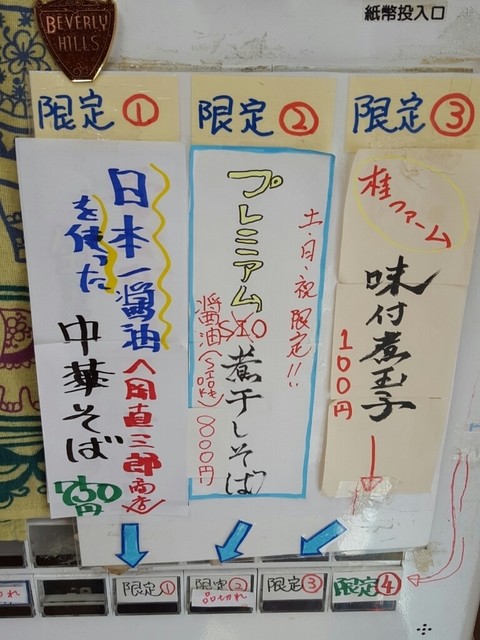 BEVERLY
HILLS
紙幣投入口
限定①
限定②
限定③
日本一醤油
を使った
中華そば
直三郎商店
750円
プレミアム
煮干しそば
土・日・祝 限定!!
800円
桂ファーム
味付煮玉子
100円
限定①
限定②
品切れ
限定③
限定④